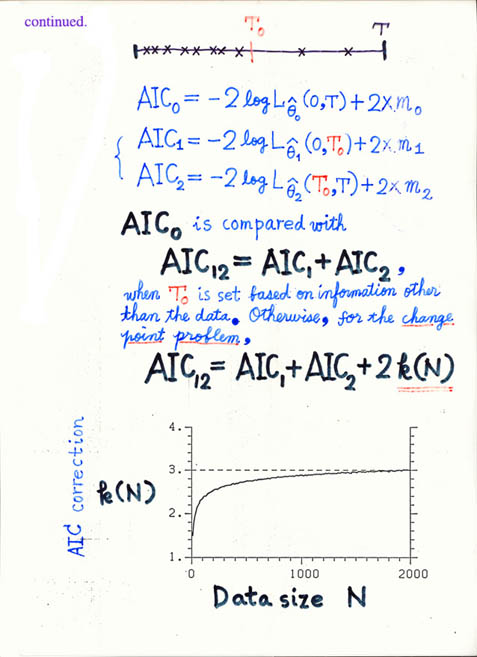 continued.
T₀ T
AIC₀ = -2 log L_θ̂₀(0,T) + 2×m₀
AIC₁ = -2 log L_θ̂₁(0,T₀) + 2×m₁
AIC₂ = -2 log L_θ̂₂(T₀,T) + 2×m₂
AIC₀ is compared with
AIC₁₂ = AIC₁ + AIC₂,
when T₀ is set based on information other
than the data. Otherwise, for the change
point problem,
AIC₁₂ = AIC₁ + AIC₂ + 2k(N)
AIC correction
k(N)
4.
3.
2.
1.
0 1000 2000
Data size N